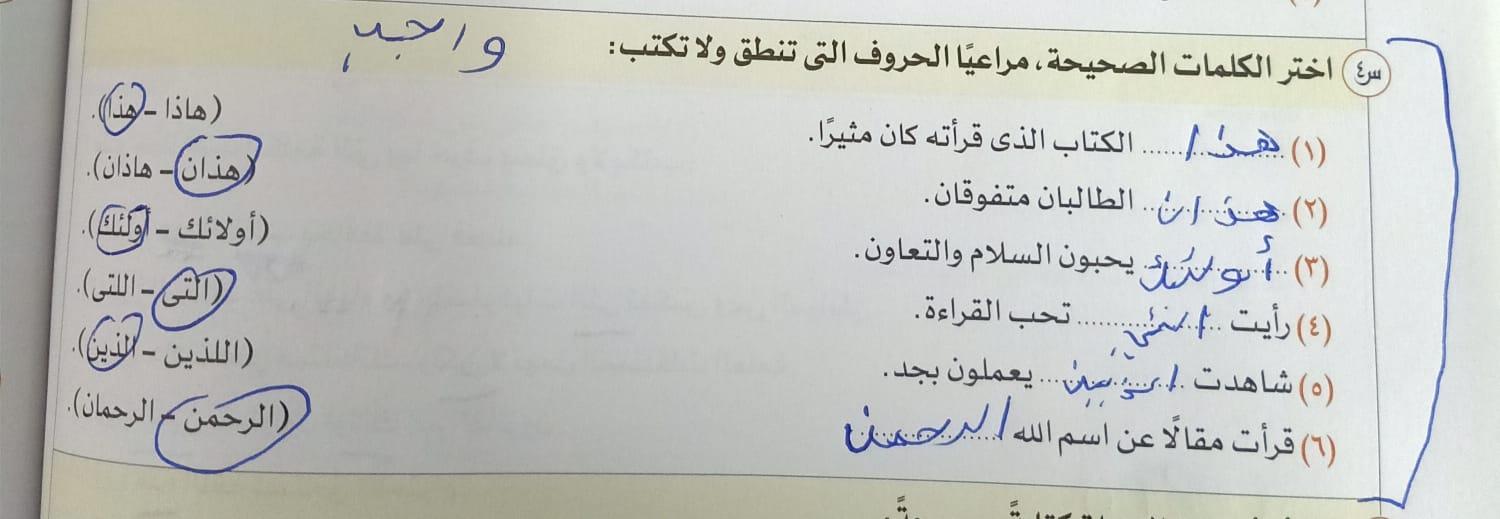 واجب
س٤ اختر الكلمات الصحيحة، مراعيًا الحروف التى تنطق ولا تكتب:
(١) هذا الكتاب الذى قرأته كان مثيرًا. (هاذا – هذا).
(٢) هذان الطالبان متفوقان. (هذان – هاذان).
(٣) أولئك يحبون السلام والتعاون. (أولائك – أولئك).
(٤) رأيت التى تحب القراءة. (التى – اللتى).
(٥) شاهدت الذين يعملون بجد. (اللذين – الذين).
(٦) قرأت مقالًا عن اسم الله الرحمن (الرحمن – الرحمان).